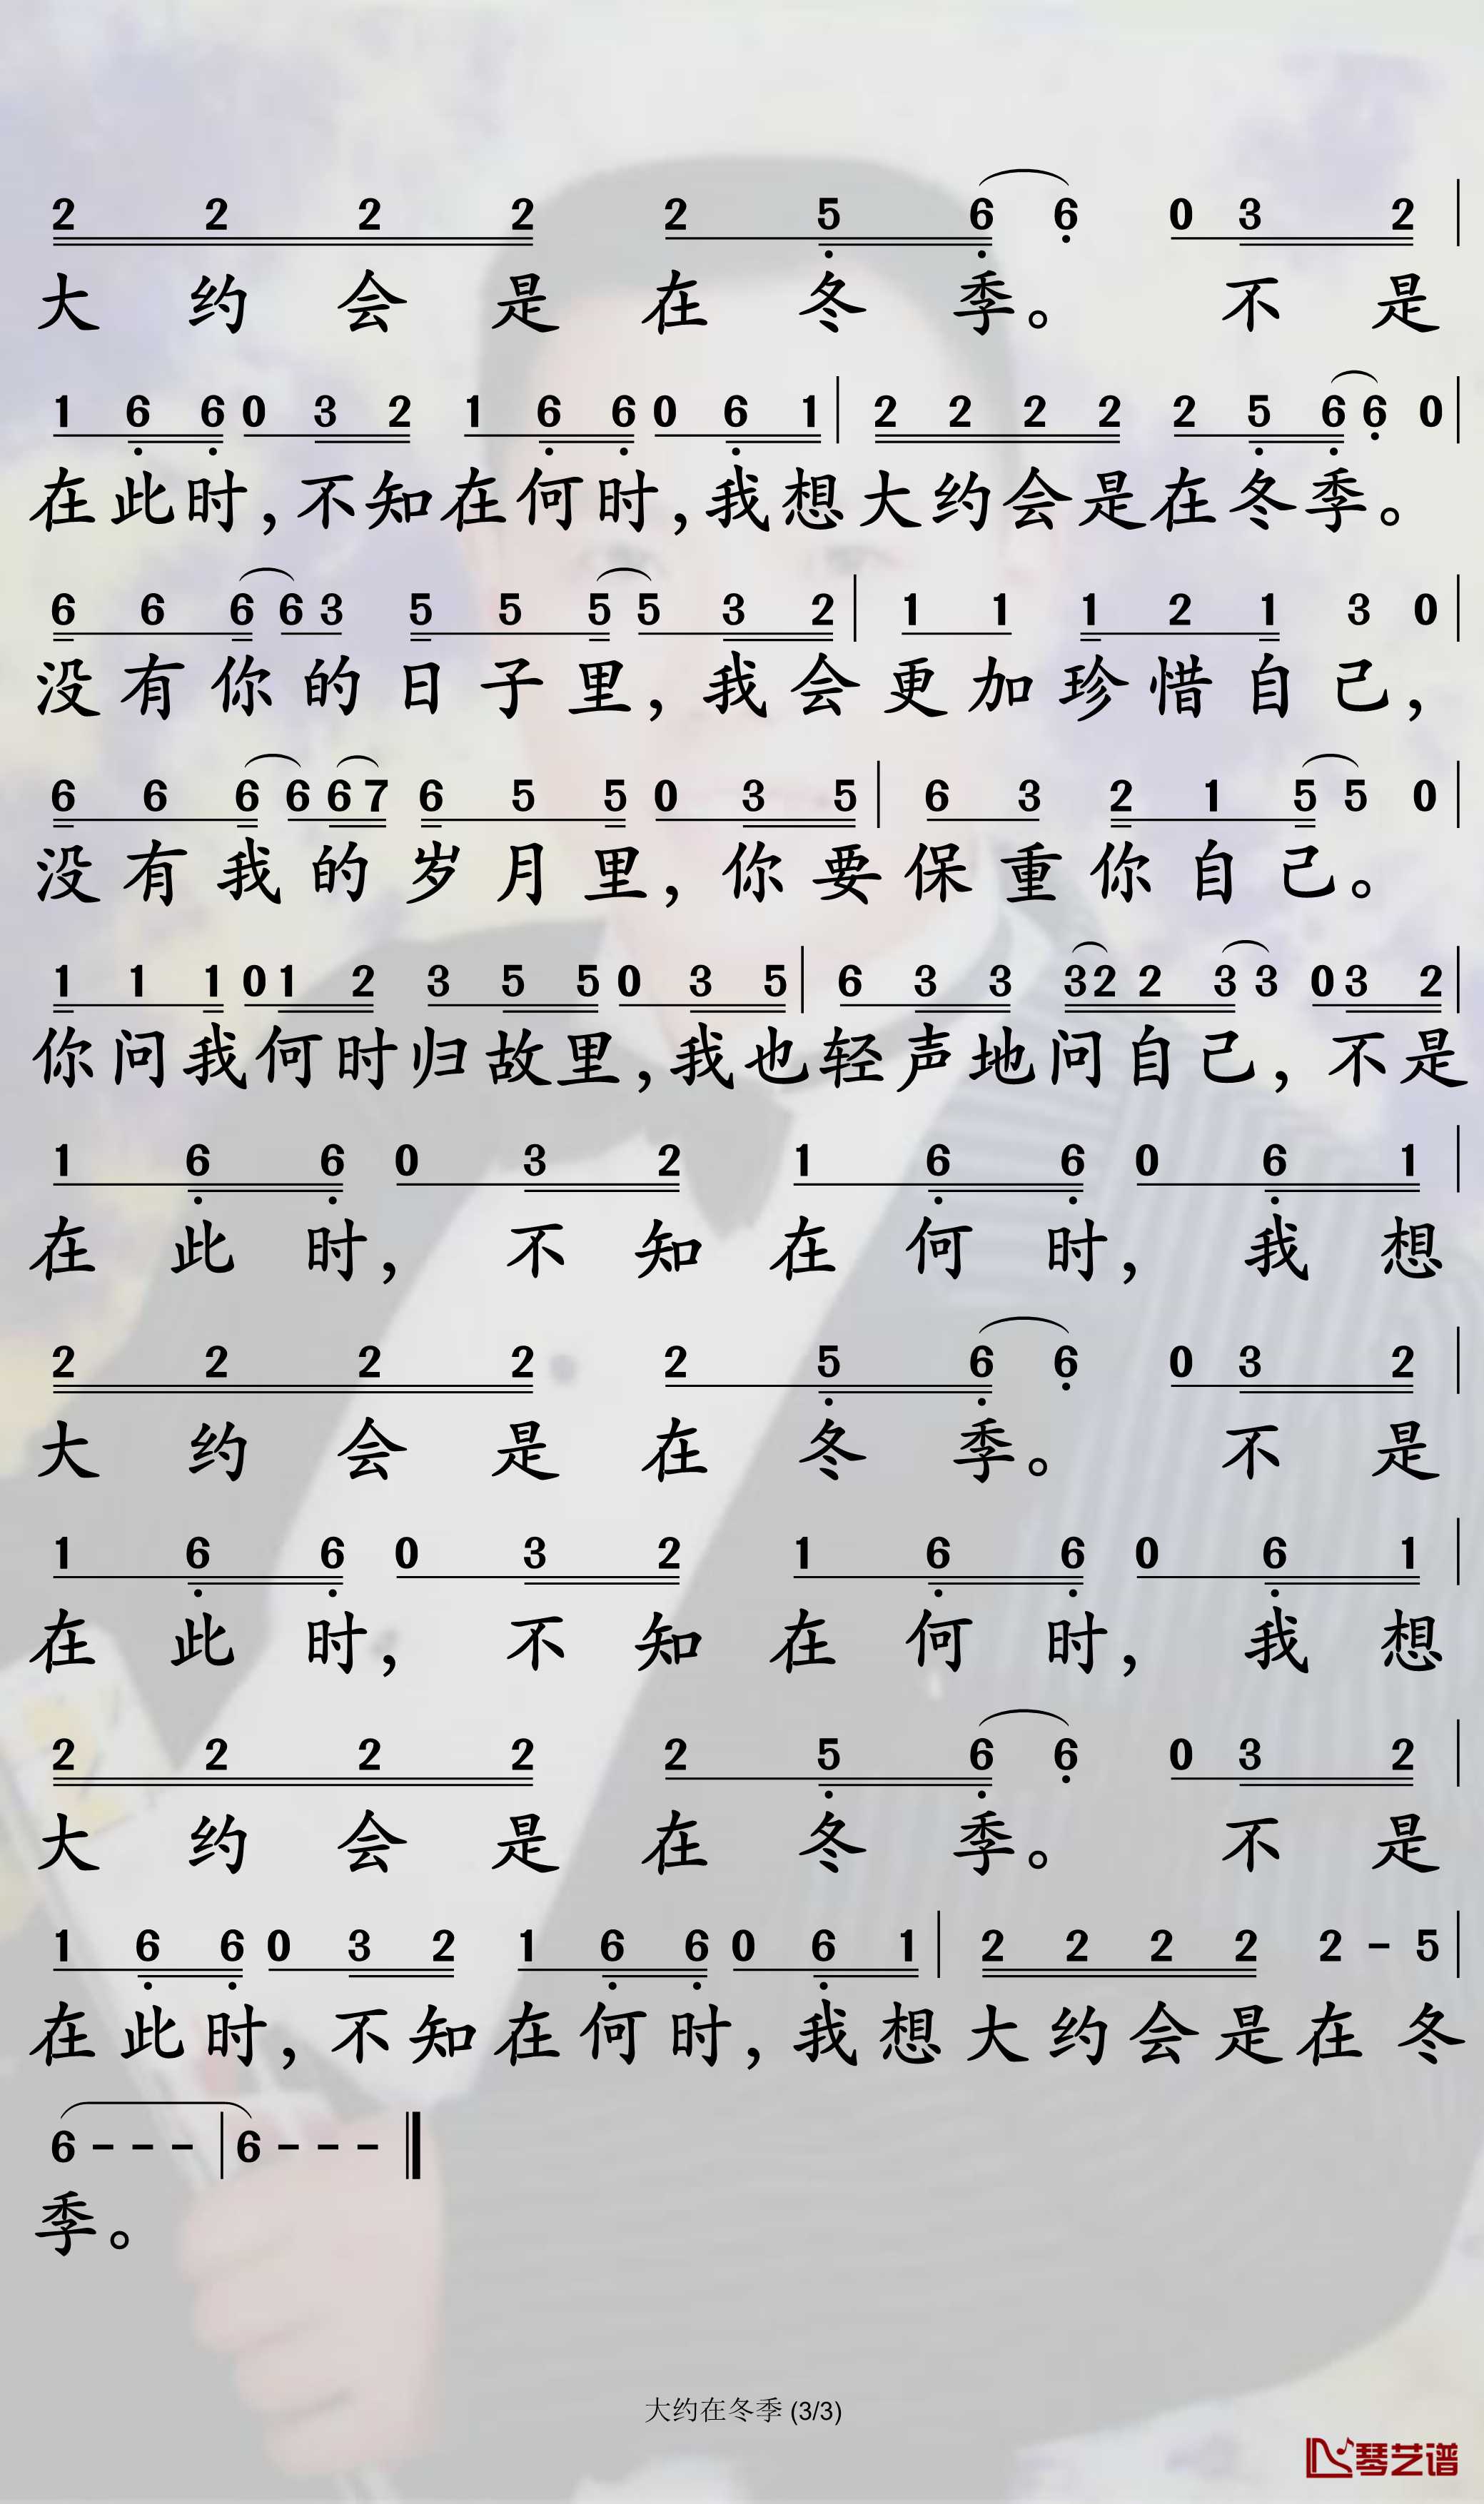 2 2 2 2 2 5 6 6 0 3 2
大 约 会 是 在 冬 季。 不 是
1 6 6 0 3 2 1 6 6 0 6 1 | 2 2 2 2 2 5 6 6 0 |
在此时,不知在何时,我想大约会是在冬季。
6 6 6 6 3 5 5 5 5 3 2 | 1 1 1 2 1 3 0 |
没有你的日子里,我会更加珍惜自己,
6 6 6 6 6 7 6 5 5 0 3 5 | 6 3 2 1 5 5 0 |
没有我的岁月里,你要保重你自己。
1 1 1 0 1 2 3 5 5 0 3 5 | 6 3 3 3 2 2 3 3 0 3 2 |
你问我何时归故里,我也轻声地问自己,不是
1 6 6 0 3 2 1 6 6 0 6 1 |
在 此 时, 不 知 在 何 时, 我 想
2 2 2 2 2 5 6 6 0 3 2 |
大 约 会 是 在 冬 季。 不 是
1 6 6 0 3 2 1 6 6 0 6 1 |
在 此 时, 不 知 在 何 时, 我 想
2 2 2 2 2 5 6 6 0 3 2 |
大 约 会 是 在 冬 季。 不 是
1 6 6 0 3 2 1 6 6 0 6 1 | 2 2 2 2 2 - 5 |
在此时,不知在何时,我想大约会是在 冬
6 - - - | 6 - - -
季。
大约在冬季 (3/3)
琴艺谱